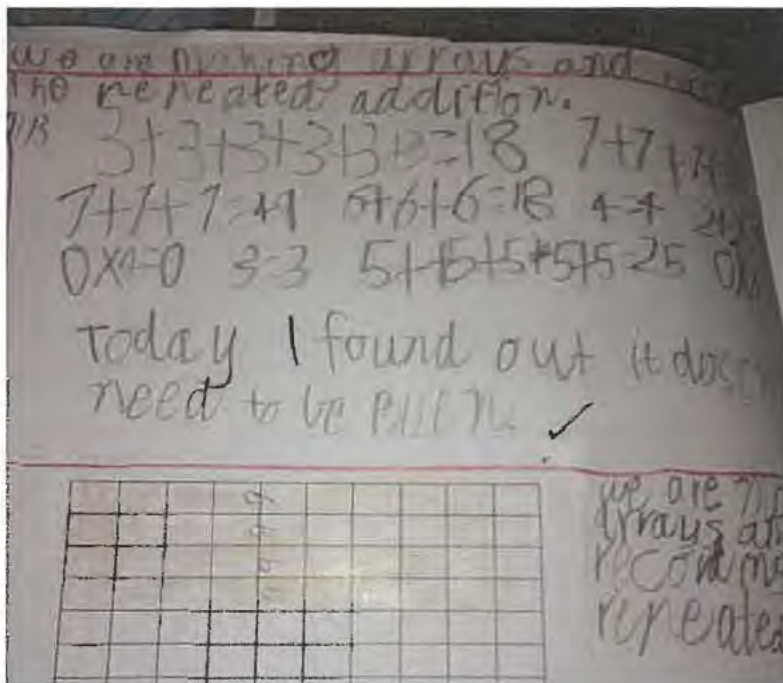 we are making arrays and
the repeated addition.
3+3+3+3+3+3=18 7+7+7+
7+7+7=41 6+6+6=18 4=4
0x4=0 3=3 5+5+5+5+5=25 0x
Today I found out it doesn
need to be even.
we are
arrays an
repeated